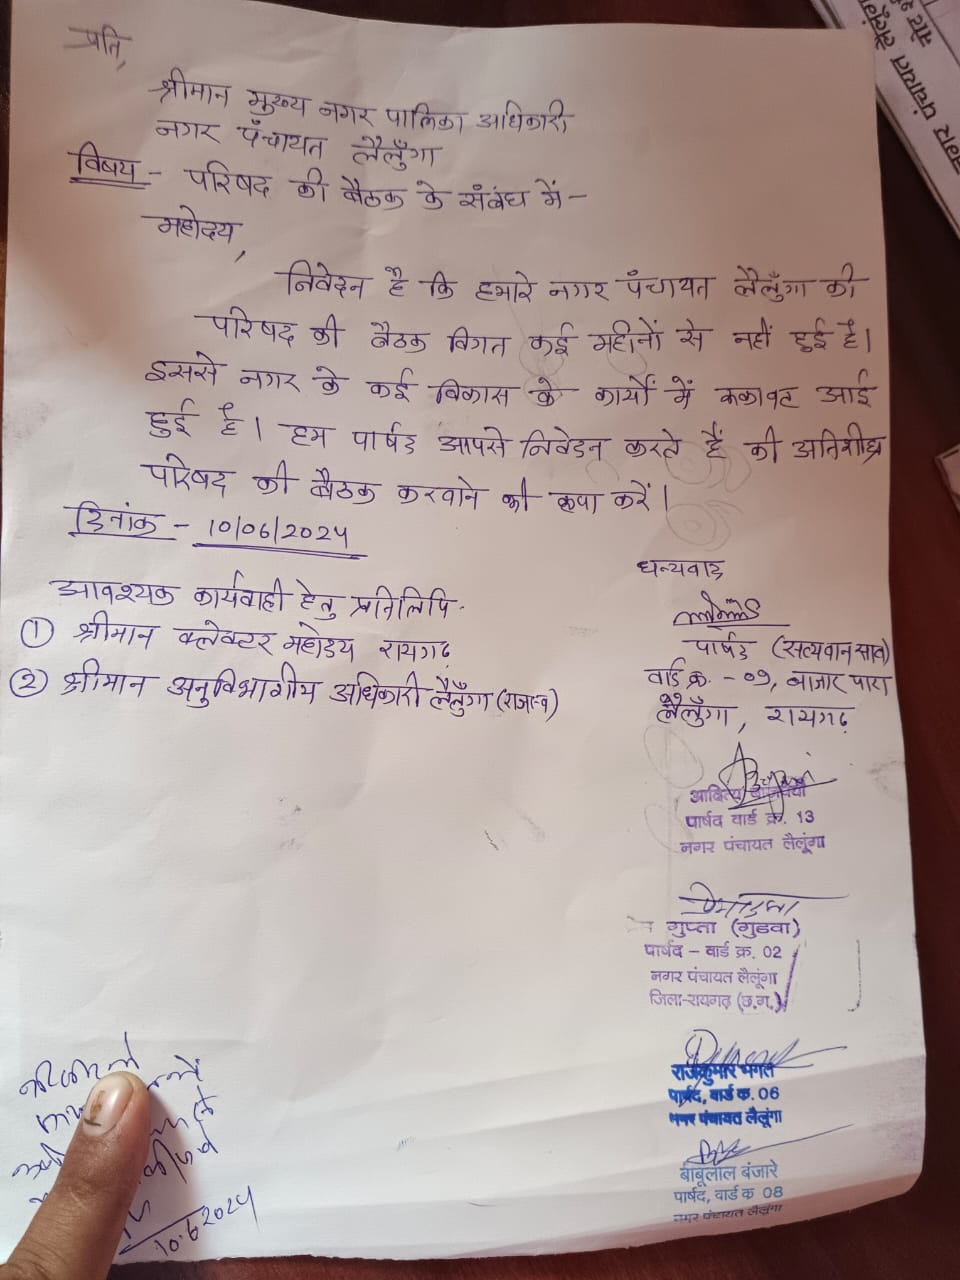 प्रति,
श्रीमान मुख्य नगर पालिका अधिकारी
नगर पंचायत लैलुँगा
विषय - परिषद की बैठक के संबंध में -
महोदय,
निवेदन है कि हमारे नगर पंचायत लैलुँगा की
परिषद की बैठक विगत कई महीनों से नहीं हुई है।
इससे नगर के कई विकास के कार्यों में रुकावट आई
हुई है। हम पार्षद आपसे निवेदन करते हैं की अतिशीघ्र
परिषद की बैठक करवाने की कृपा करें।
दिनांक - 10/06/2024
धन्यवाद
आवश्यक कार्यवाही हेतु प्रतिलिपि -
① श्रीमान कलेक्टर महोदय रायगढ़
② श्रीमान अनुविभागीय अधिकारी लैलुँगा (राजस्व)
पार्षद (सत्यवान साव)
वार्ड क्र. - 09, बाजार पारा
लैलुँगा, रायगढ़
आदित्य बाजपेयी
पार्षद वार्ड क्र. 13
नगर पंचायत लैलूंगा
गुप्ता (गुडवा)
पार्षद - वार्ड क्र. 02
नगर पंचायत लैलूंगा
जिला-रायगढ़ (छ.ग.)
राजकुमार भगत
पार्षद, वार्ड क. 06
नगर पंचायत लैलूंगा
बाबूलाल बंजारे
पार्षद, वार्ड क 08
नगर पंचायत लैलूंगा
10.6.2024
नगर पंचायत लैलूंगा